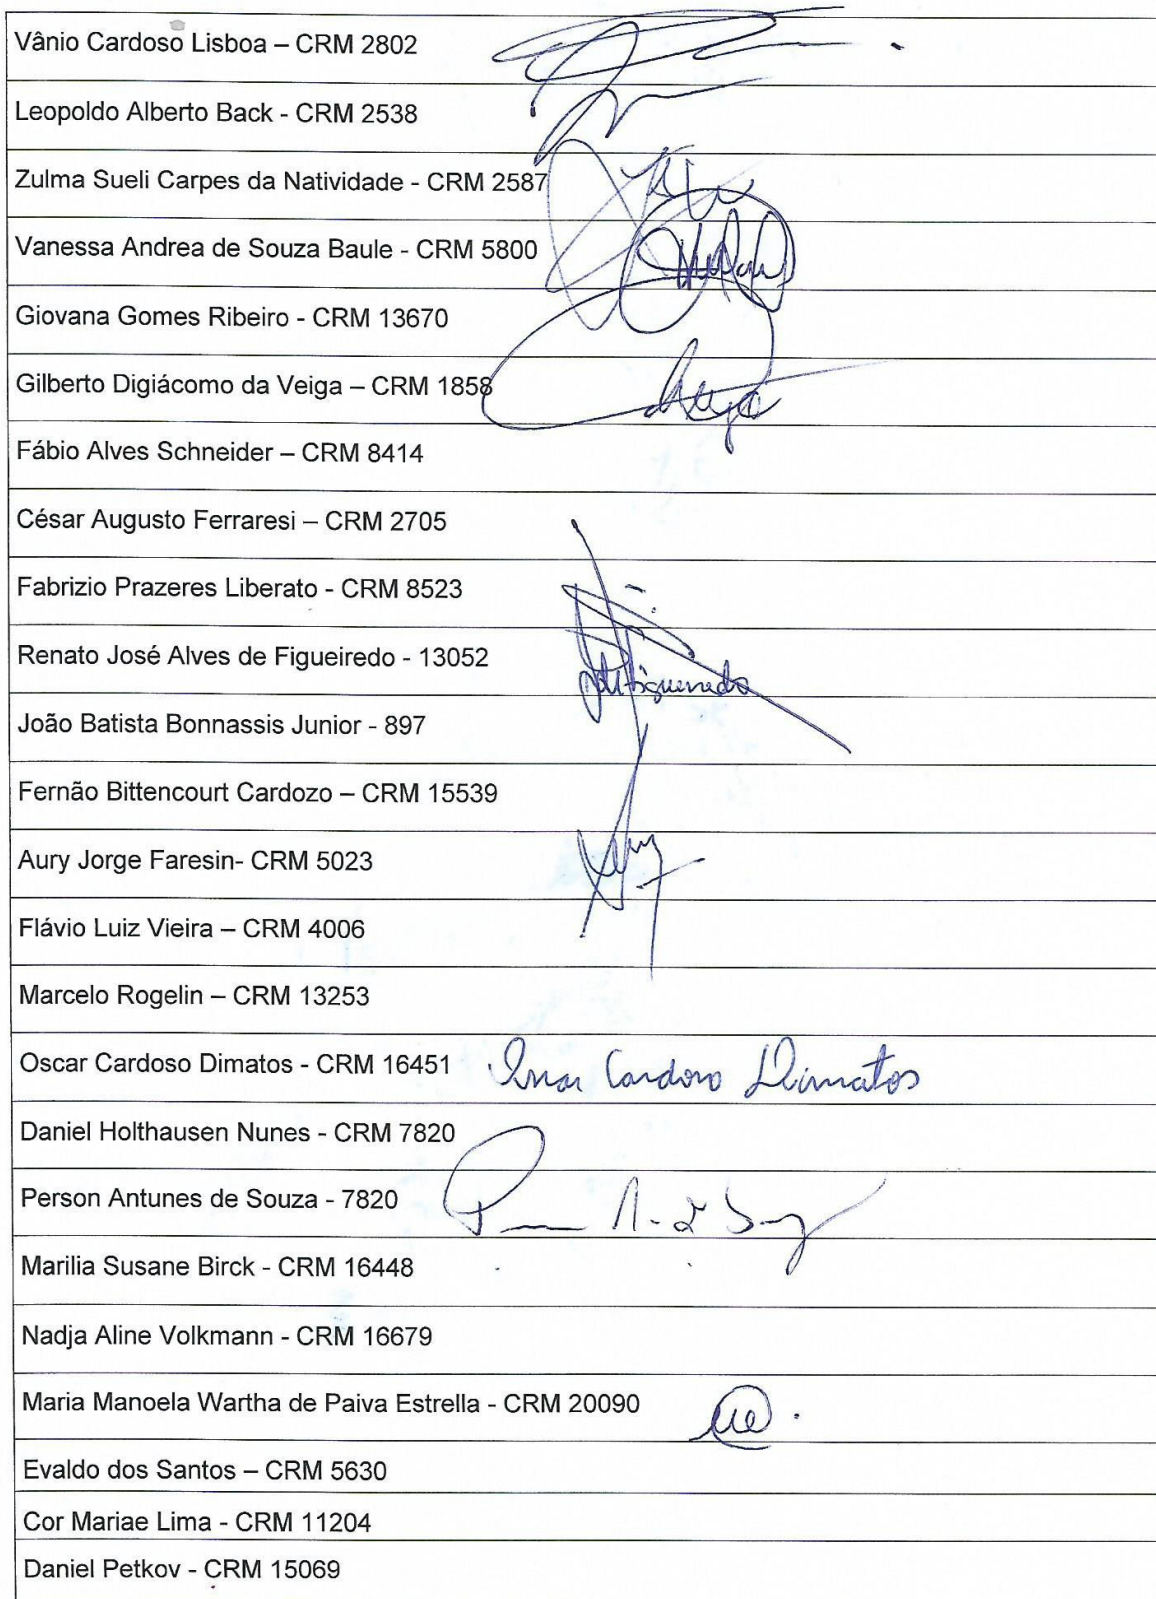 Vânio Cardoso Lisboa – CRM 2802
Leopoldo Alberto Back - CRM 2538
Zulma Sueli Carpes da Natividade - CRM 2587
Vanessa Andrea de Souza Baule - CRM 5800
Giovana Gomes Ribeiro - CRM 13670
Gilberto Digiácomo da Veiga – CRM 1858
Fábio Alves Schneider – CRM 8414
César Augusto Ferraresi – CRM 2705
Fabrizio Prazeres Liberato - CRM 8523
Renato José Alves de Figueiredo - 13052
João Batista Bonnassis Junior - 897
Fernão Bittencourt Cardozo – CRM 15539
Aury Jorge Faresin- CRM 5023
Flávio Luiz Vieira – CRM 4006
Marcelo Rogelin – CRM 13253
Oscar Cardoso Dimatos - CRM 16451 Oscar Cardoso Dimatos
Daniel Holthausen Nunes - CRM 7820
Person Antunes de Souza - 7820
Marilia Susane Birck - CRM 16448
Nadja Aline Volkmann - CRM 16679
Maria Manoela Wartha de Paiva Estrella - CRM 20090
Evaldo dos Santos – CRM 5630
Cor Mariae Lima - CRM 11204
Daniel Petkov - CRM 15069